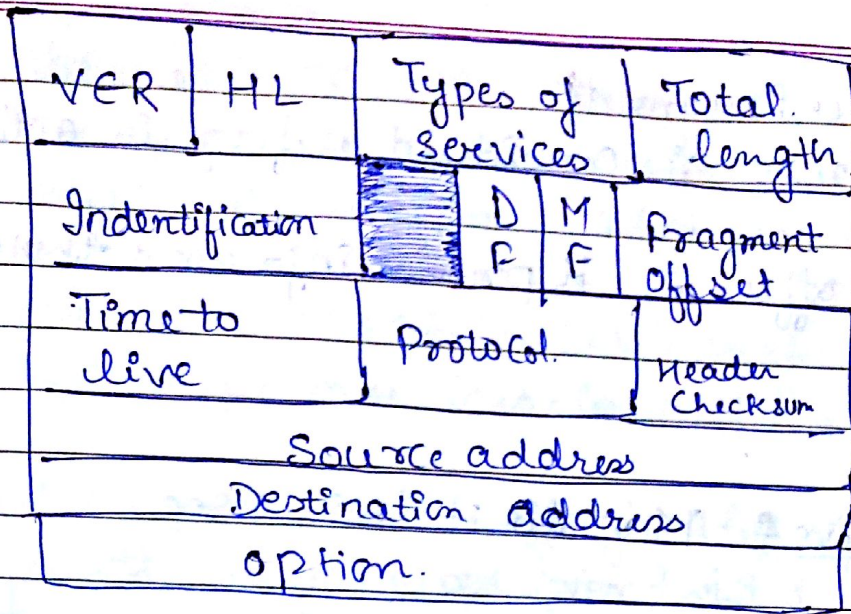 VER HL Types of Services Total. length
Indentification D F M F Fragment Offset
Time to live Protocol. Header Checksum
Source address
Destination address
option.